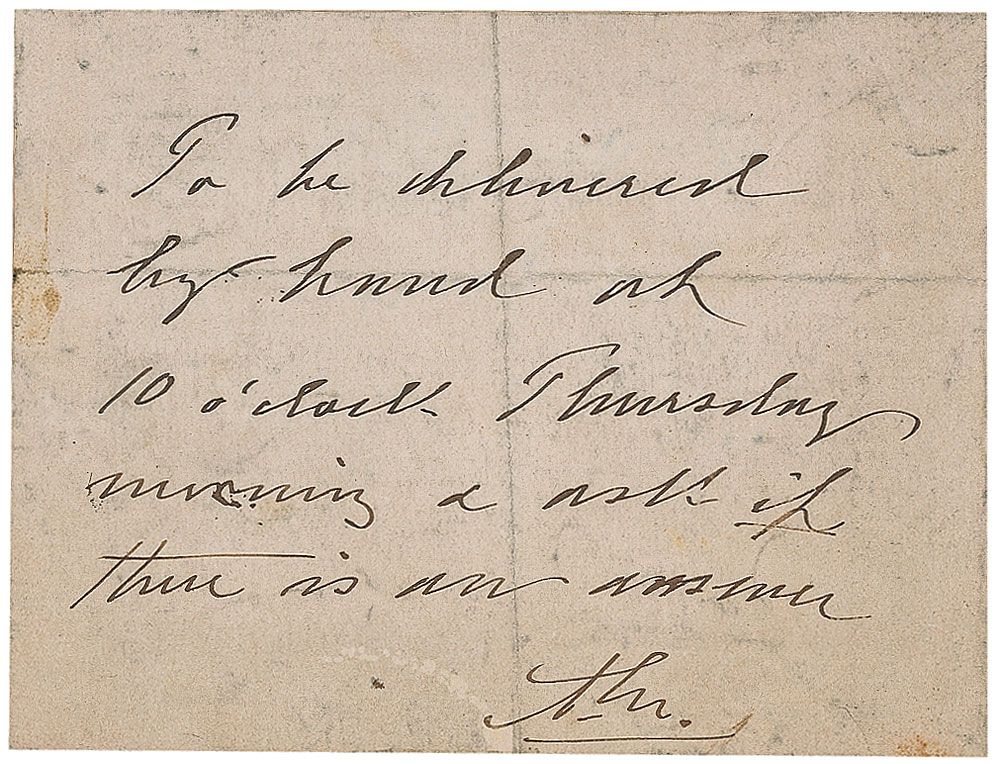 To be delivered
by hand at
10 o'clock Thursday
morning & ask if
there is an answer